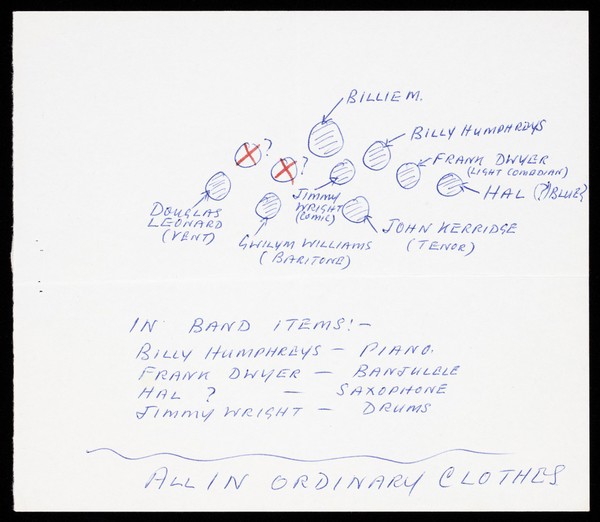 BILLIE M.
BILLY HUMPHREYS
? ?
FRANK DWYER
(LIGHT COMEDIAN)
HAL (?)BLUE?
JIMMY
WRIGHT
(COMIC)
DOUGLAS
LEONARD
(VENT)
GWILYM WILLIAMS
(BARITONE)
JOHN KERRIDGE
(TENOR)
IN BAND ITEMS:-
BILLY HUMPHREYS - PIANO.
FRANK DWYER - BANJULELE
HAL ? - SAXOPHONE
JIMMY WRIGHT - DRUMS
ALL IN ORDINARY CLOTHES